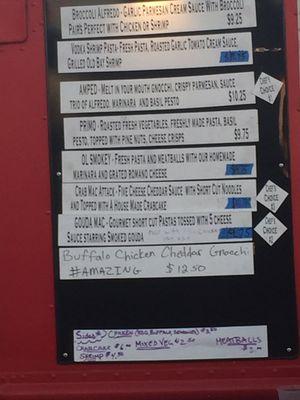 Broccoli Alfredo- Garlic Parmesan Cream Sauce With Broccoli
Pairs Perfect with Chicken or Shrimp
$9.25
Vodka Shrimp Pasta- Fresh Pasta, Roasted Garlic Tomato Cream Sauce,
Grilled Old Bay Shrimp
Amped - Melt in your Mouth Gnocchi, Crispy Parmesan, Sauce
Trio of Alfredo, Marinara and Basil Pesto
$10.25
Chef's
Choice
#3
Primo - Roasted Fresh Vegetables, Freshly Made Pasta, Basil
Pesto, Topped with Pine Nuts, Cheese Crisps
$9.75
Ol Smokey - Fresh Pasta and Meatballs with our Homemade
Marinara and Grated Romano Cheese
Crab Mac Attack - Five Cheese Cheddar Sauce with Short Cut Noodles
and Topped with a House Made Crabcake
Chef's
Choice
Gouda Mac - Gourmet short cut Pastas tossed with 5 Cheese
Sauce starring Smoked Gouda
Chef's
Choice
Buffalo Chicken Cheddar Gnocchi
#AMAZING $12.50
Sides
Crabcake $6 Mixed Veg $2.50 Meatballs
Shrimp $4.50